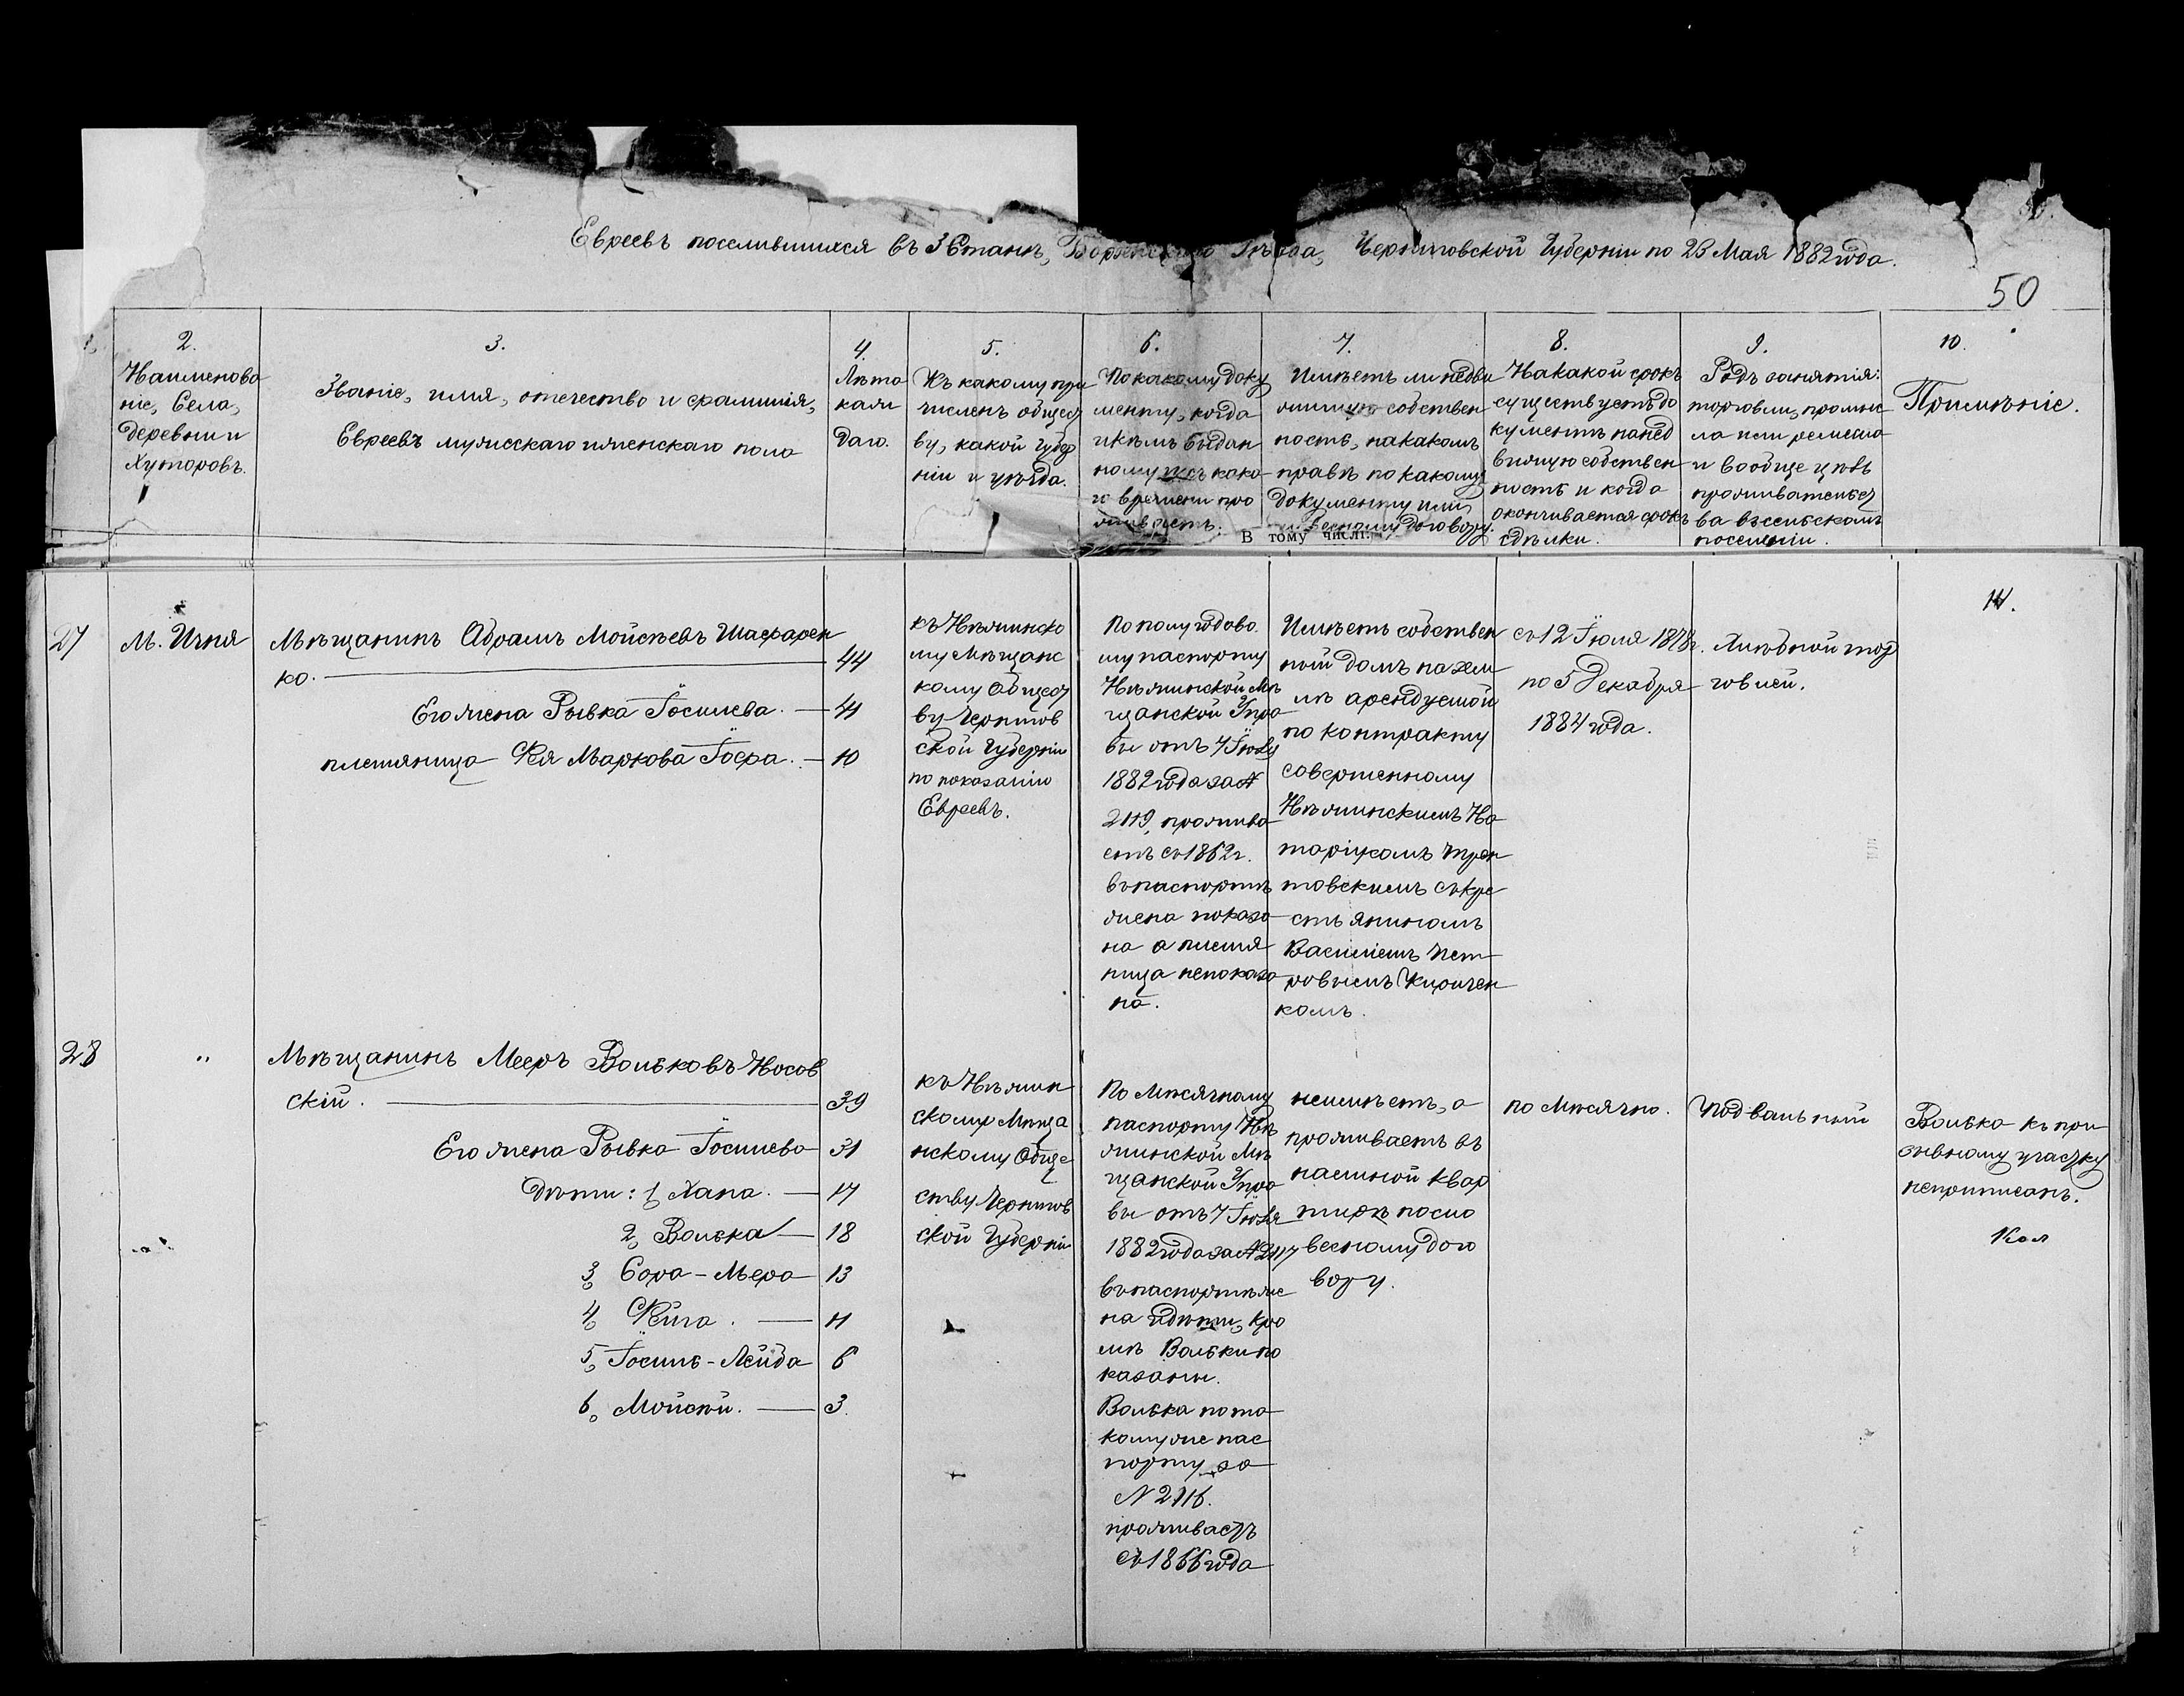 Евреевъ поселившихся въ 3 Станѣ, Борзенскаго Уѣзда, Черниговской Губерніи по 23 Мая 1882 года.
50
2.
Наименова
ніе, Села,
деревни и
Хуторовъ.
3.
Званіе, имя, отечество и фамилія,
Евреевъ мужескаго и женскаго пола
4.
Лѣта
каж
даго.
5.
Къ какому при
численъ общест
ву, какой губер
ніи и уѣзда.
6.
По какому доку
менту, когда
и кѣмъ выдан
ному и съ како
го времени про
живаетъ.
7.
Имѣетъ ли недви
жимую собствен
ность, на какомъ
правѣ по какому
документу или
словесному договору.
В тому числі:
8.
На какой срокъ
существуетъ до
кументъ на нед
вижую собствен
ность и когда
окончивается срокъ
сдѣлки.
9.
Родъ занятія:
торговли, промыс
ла или ремесла
и вообще цѣль
прожительст
ва въ сельскомъ
поселеніи.
10.
Примѣніе.
27
М. Ичня
Мѣщанинъ Абрамъ Мойсѣевъ Шафарен
ко. — 44
Его жена Рывка Іосилева. — 41
племяница Фея Маркова Іофа. — 10
къ Нѣжинско
му Мѣщанс
кому Общест
ву Чернигов
ской Губерніи
по показанію
Евреевъ.
По полугодово
му паспорту
Нѣжинской Мѣ
щанской Упра
вы отъ 7 Іюля
1882 года за №
2119, прожива
етъ съ 1862 г.
въ паспортѣ
жена показа
на а племя
ница непоказа
на.
Имѣетъ собствен
ный домъ на зем
лѣ арендуемой
по контракту
совершенному
Нѣжинскимъ На
таріусомъ
товскимъ съ кре
стьяниномъ
Василіемъ Пет
ровымъ Киричен
комъ.
съ 12 Іюля 1878 г.
по 5 Декабря
1884 года.
Хлѣбной тор
говлей.
28
"
Мѣщанинъ Мееръ Вольковъ Носов
скій. — 39
Его жена Рывка Іосилева 31
Дѣти: 1, Хана. — 17
2, Волька — 18
3, Сора-Мера 13
4, Фейга. — 11
5, Іосипъ-Лейба 6
6, Мойсѣй. — 3.
къ Нѣжин
скому Мѣща
нскому Обще
ству Чернигов
ской Губерніи
По Мѣсячному
паспорту Нѣ
жинской Мѣ
щанской Упра
вы отъ 7 Іюля
1882 года за № 2117
въ паспортѣ же
на и дѣти, кро
мѣ Вольки по
казаны.
Волька по та
кому же пас
порту за
N 2116.
проживаетъ
съ 1866 года
неимѣетъ, а
проживаетъ въ
наемной квар
тирѣ по сло
весному дого
вору.
по Мѣсячно.
Подвальный
Волька къ при
зывному участку
неприписанъ.